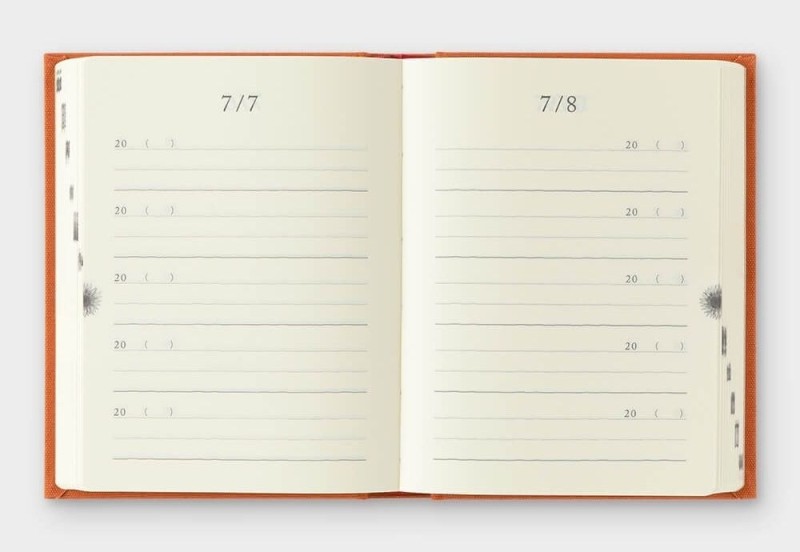 7/7
20 ( )
20 ( )
20 ( )
20 ( )
20 ( )
7/8
20 ( )
20 ( )
20 ( )
20 ( )
20 ( )